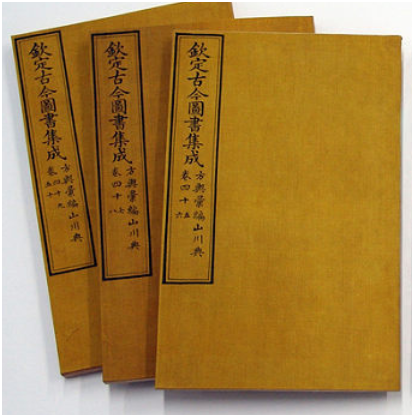 欽定古今圖書集成
方輿彙編山川典
卷四十五
六
欽定古今圖書集成
方輿彙編山川典
卷四十七
八
欽定古今圖書集成
方輿彙編山川典
卷四十九
五十